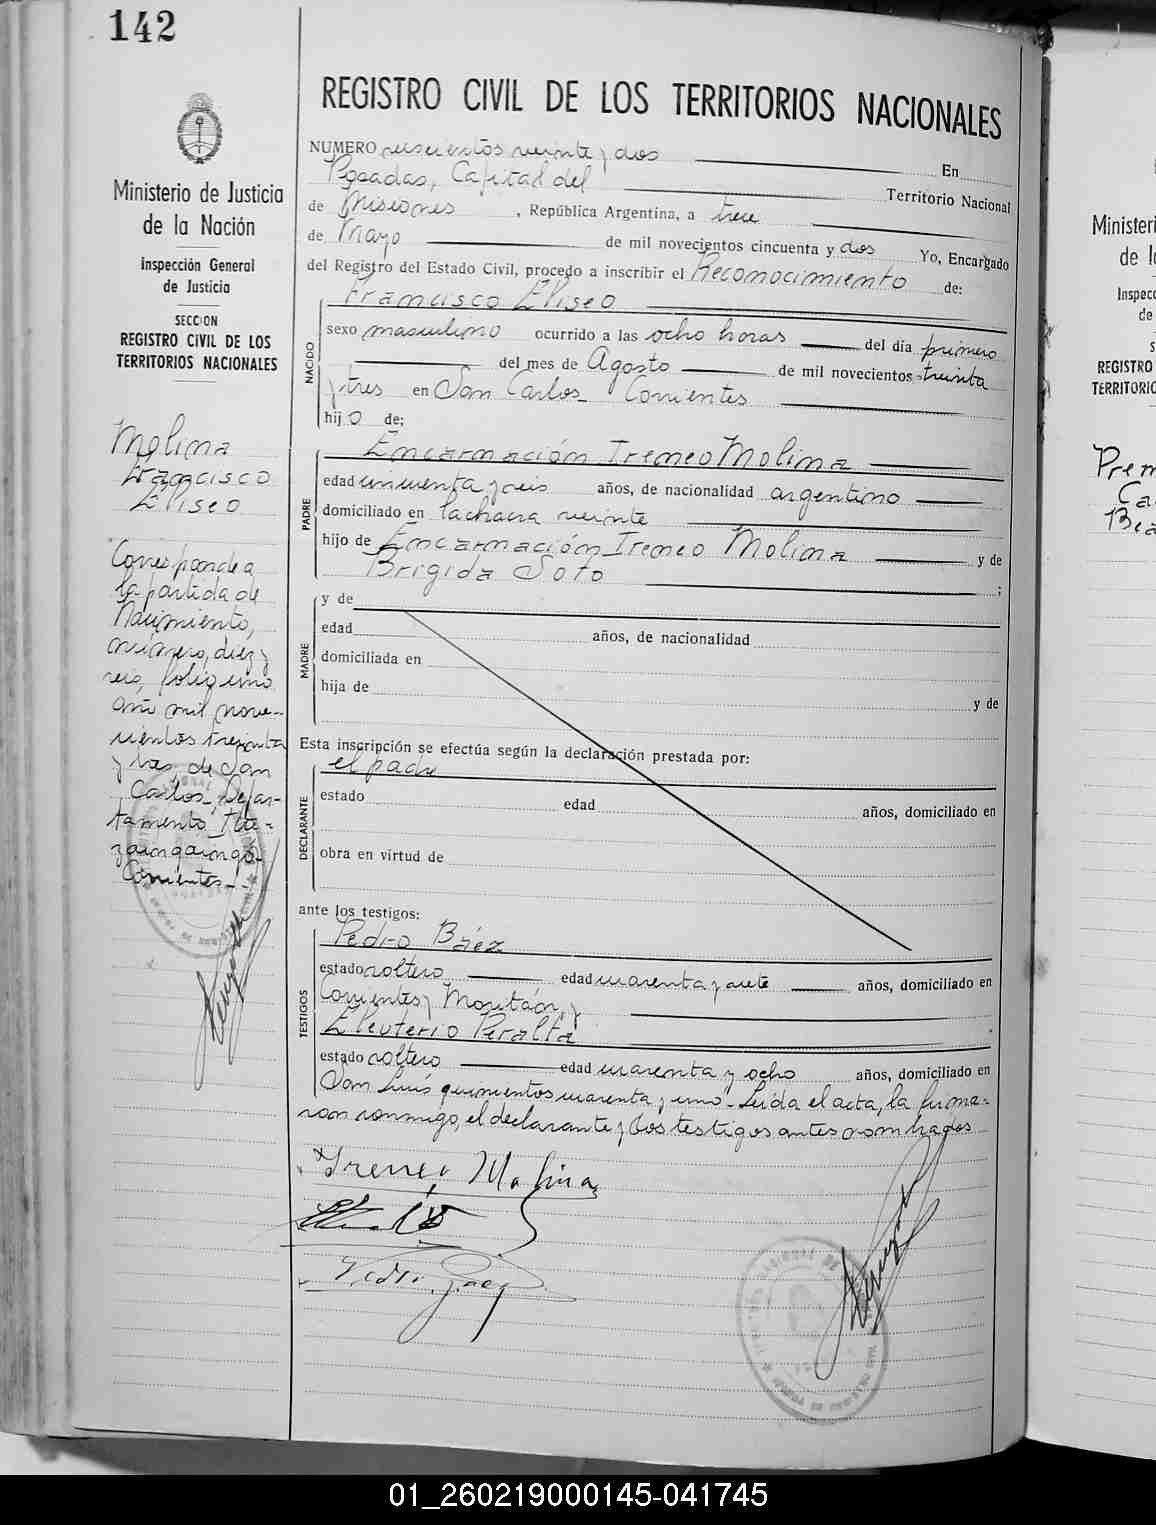 142
Ministerio de Justicia
de la Nación
Inspección General
de Justicia
SECCION
REGISTRO CIVIL DE LOS
TERRITORIOS NACIONALES
Molina
Francisco
Eliseo
Corresponde a
la partida de
Nacimiento,
número, diez y
seis, folio uno
año mil nove-
cientos treinta
y tres, de San
Carlos, Depar-
tamento Itu-
zaingaingó
Corrientes.-
REGISTRO CIVIL DE LOS TERRITORIOS NACIONALES
NUMERO seiscientos veinte y dos En
Posadas, Capital del Territorio Nacional
de Misiones, República Argentina, a trece
de Mayo de mil novecientos cincuenta y dos Yo, Encargado
del Registro del Estado Civil, procedo a inscribir el Reconocimiento de:
Francisco Eliseo
NACIDO
sexo masculino ocurrido a las ocho horas del día primero
del mes de Agosto de mil novecientos treinta
y tres en San Carlos_ Corrientes
hijo de:
Encarnación Ireneo Molina
PADRE
edad cincuenta y seis años, de nacionalidad argentino
domiciliado en la chacra veinte
hijo de Encarnación Ireneo Molina y de
Brigida Soto ;
MADRE
y de
edad años, de nacionalidad
domiciliada en
hija de
y de
Esta inscripción se efectúa según la declaración prestada por:
el padre
DECLARANTE
estado edad años, domiciliado en
obra en virtud de
ante los testigos:
Pedro Báez
TESTIGOS
estado soltero edad cuarenta y siete años, domiciliado en
Corrientes y Moritán, y
Eleuterio Peralta
estado soltero edad cuarenta y ocho años, domiciliado en
San Luis quinientos cuarenta y uno- Leida el acta, la firma-
ron conmigo, el declarante y los testigos antes nombrados
Ireneo Molina
Pedro Baez
Ministeri
de l
Inspecc
de
S
REGISTRO
TERRITORIO
Prem
Ca
Bea
01_260219000145-041745